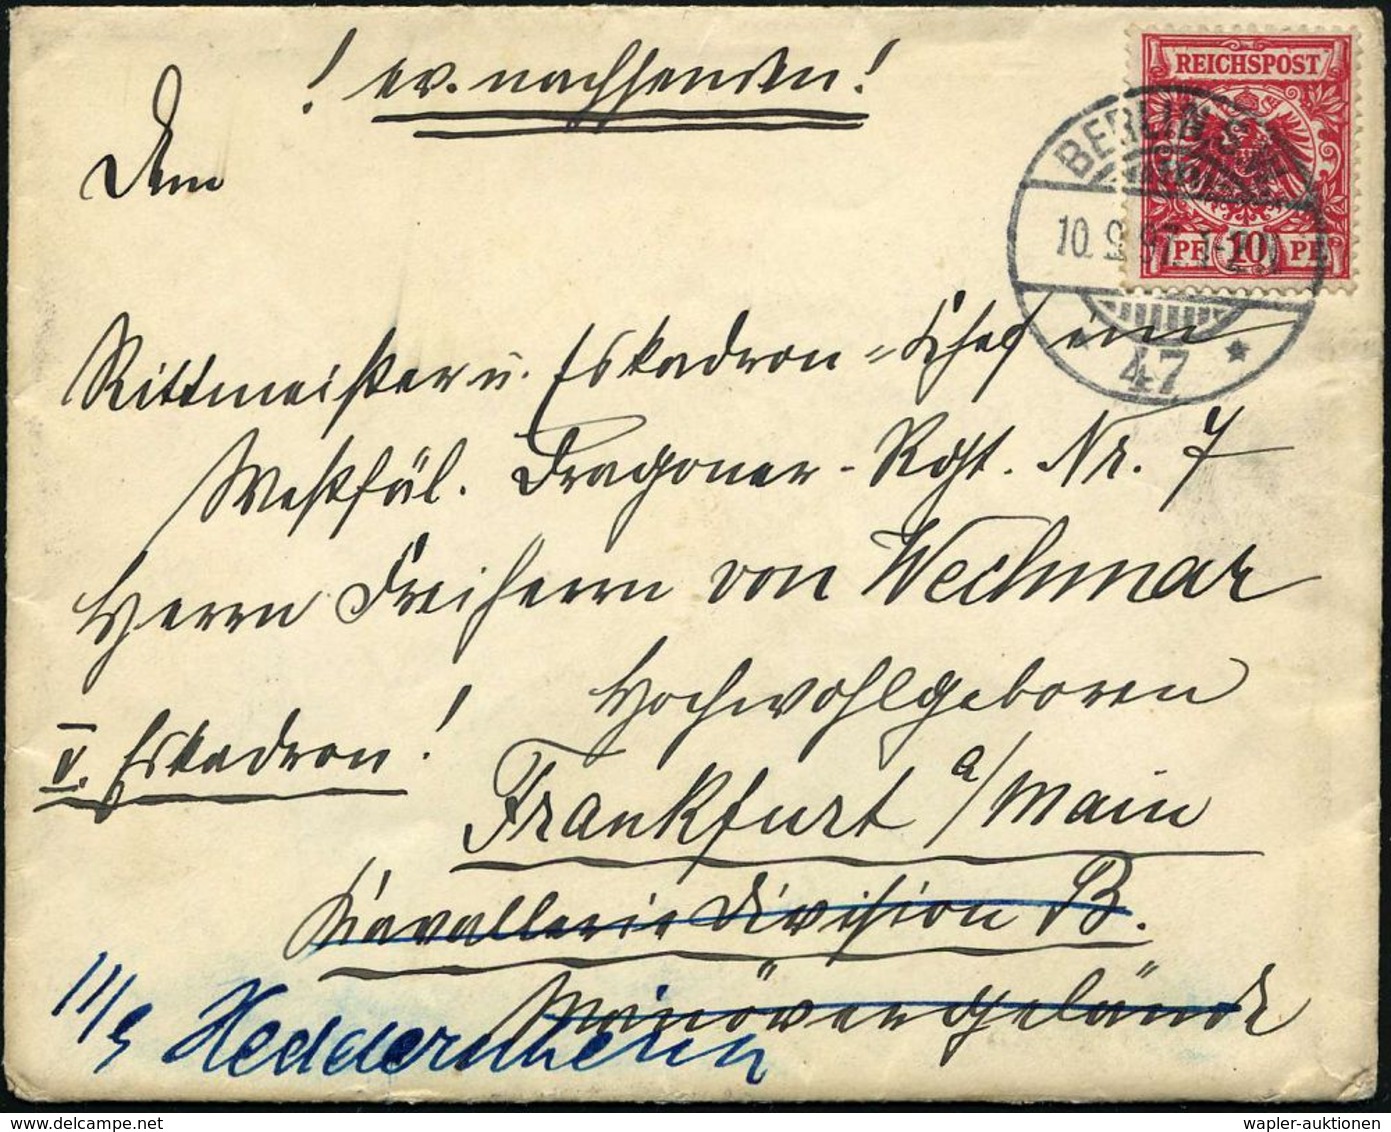 ! ev. nachsenden!
REICHSPOST
PF 10 PF
BERLIN S.W.
10.9.97. 1-2 N
47 *
Dem
Rittmeister u. Eskadron-Chef im
Westfäl. Dragoner-Rgt. Nr. 7
Herrn Freiherrn von Wechmar
Hochwohlgeboren
V. Eskadron!
Frankfurt a/Main
Kavallerie Division B.
Manövergelände
11/9 Heddernheim
wapler-auktionen